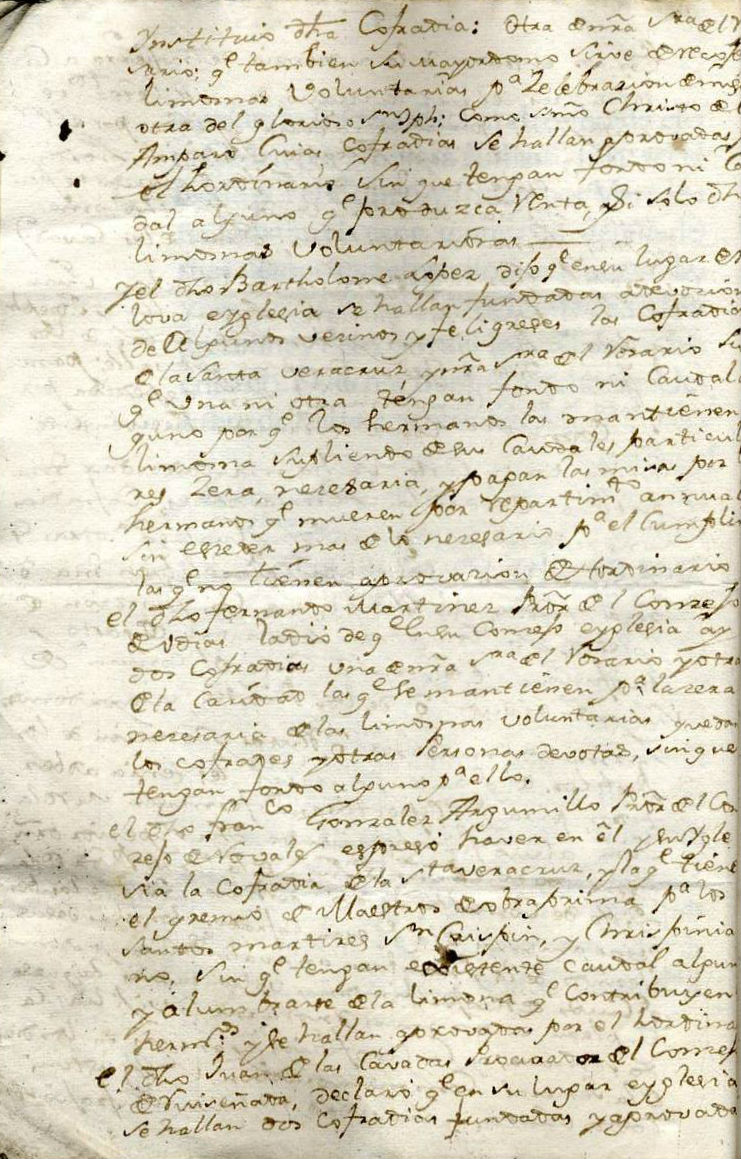 Ynstituio dha Cofradia: Otra de nra Sra del
sario; ql tambien su mayordomo sirve de
limosnas Voluntarias pa Zelebrazion de
otra del glorioso Sn Jph; como Smo Christo de
Amparo Cuias Cofradias se hallan aprovadas
el hordinario Sin que tengan fondo ni
dal alguno ql produzca Renta, Si solo dhas
limosnas Voluntarias
Y el dho Bartholome Lopez dijo ql en su lugar de
lova e yglesia se hallan fundadas a devozion
de Algunos vezinos y feligreses las Cofradias
de la Santa Veracruz y nra Sra del Rosario Sin
ql Una ni otra tengan fondo ni Caudal
guno por ql los hermanos las mantienen
limosna supliendo de sus Caudales particula
res Zera nezesaria, y pagan las misas por
hermanos ql mueren por repartimto annual
sin exzeder mas de lo nezesario pa el Cumpli
las ql no tienen aprovazion de hordinario
el dho fernando Martinez Pror del Conzejo
de Udias la dio de ql en su Conzejo e yglesia ay
dos Cofradias una de nra Sra del Rosario y otra
de la Caridad las ql se mantienen pa la zera
nezesaria de las limosnas voluntarias que dan
los cofrades y otras Personas devotas, sin que
tengan fondo alguno pa ello.
el dho franco Gonzalez Argumillo Pror del Con
zejo de Novales espresó haver en él y su Ygle
sia la Cofradia de la Sta veracruz, y la ql tiene
el gremio de Maestros de obra prima pa los
santos martires Sn Crispin, y Chrispinia
no, sin ql tengan existente caudal algun
y alumbrarse de la limosna ql Contribuyen
hermos y se hallan aprovadas por el hordina
el dho Juan de las Cavadas Procurador del Conzej
de Ruiseñada, declaró ql en su lugar e yglesia
se hallan dos Cofradias fundadas y aprovadas